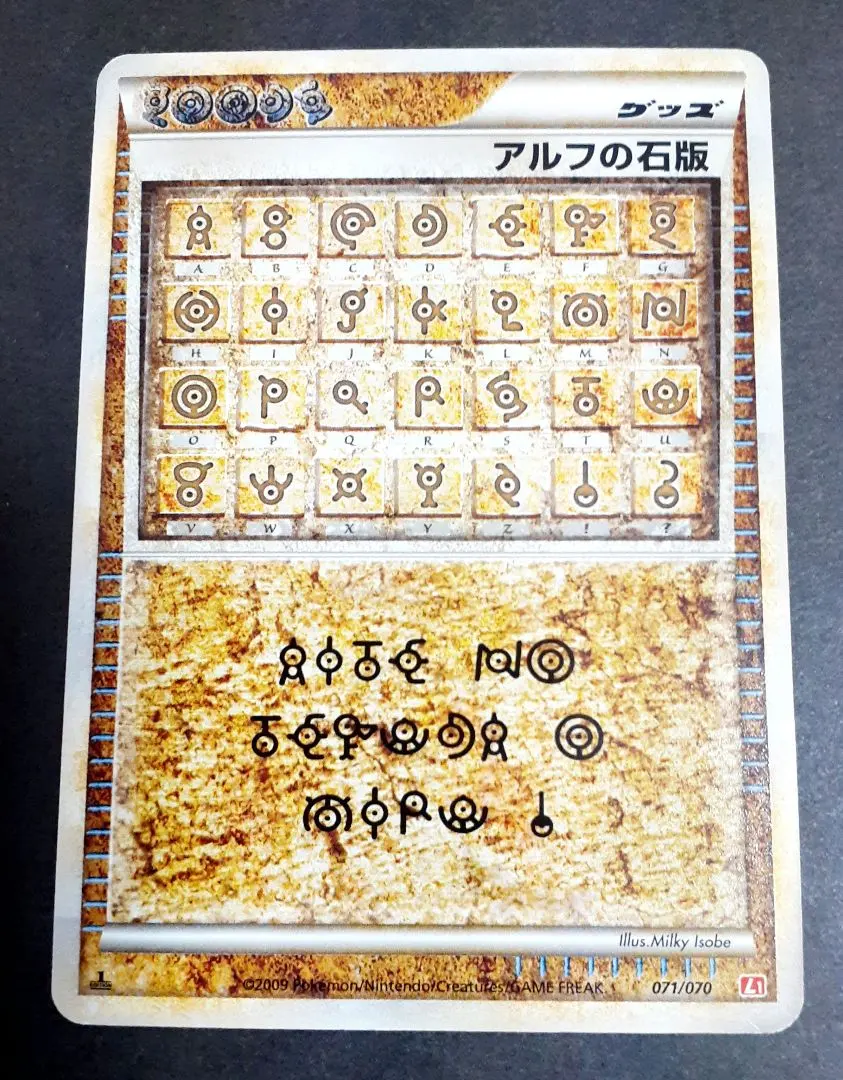 グッズ
アルフの石版
A B C D E F G
H I J K L M N
O P Q R S T U
V W X Y Z ! ?
AITE NO
TEFUDA O
MIRU !
Illus.Milky Isobe
1 EDITION
©2009 Pokémon/Nintendo/Creatures/GAME FREAK.
071/070
L1